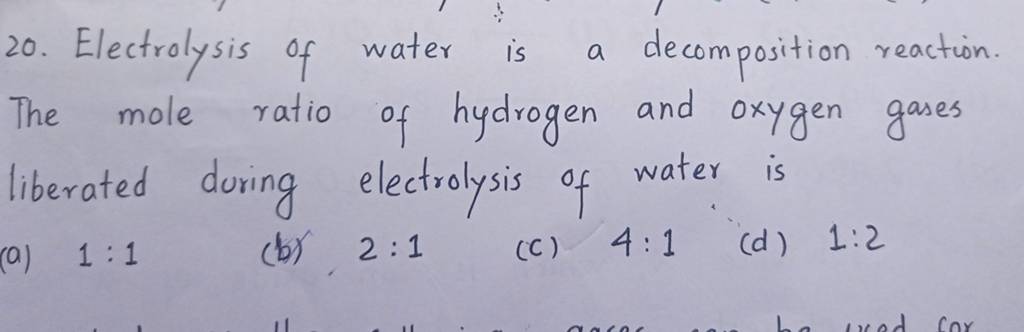 20. Electrolysis of water is a decomposition reaction.
The mole ratio of hydrogen and oxygen gases
liberated during electrolysis of water is
(a) 1:1 (b) 2:1 (c) 4:1 (d) 1:2